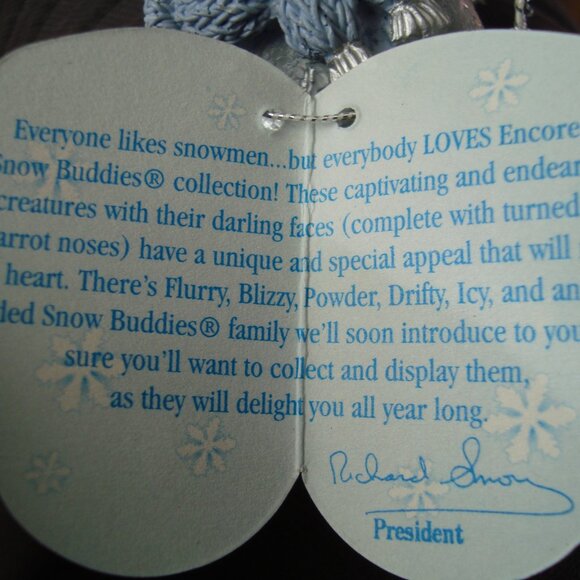 Everyone likes snowmen...but everybody LOVES Encore
Snow Buddies® collection! These captivating and endear
creatures with their darling faces (complete with turned
arrot noses) have a unique and special appeal that will
heart. There's Flurry, Blizzy, Powder, Drifty, Icy, and an
ded Snow Buddies® family we'll soon introduce to you
sure you'll want to collect and display them,
as they will delight you all year long.
Richard
President